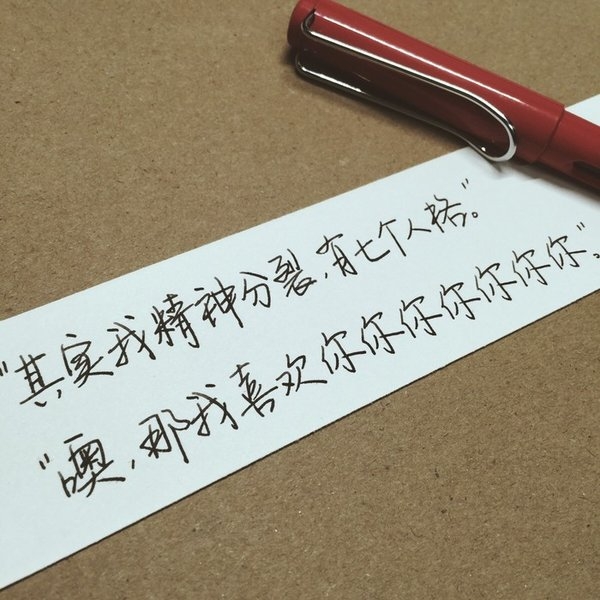 "其实我精神分裂,有七个人格。"
"噢,那我喜欢你你你你你你你"。